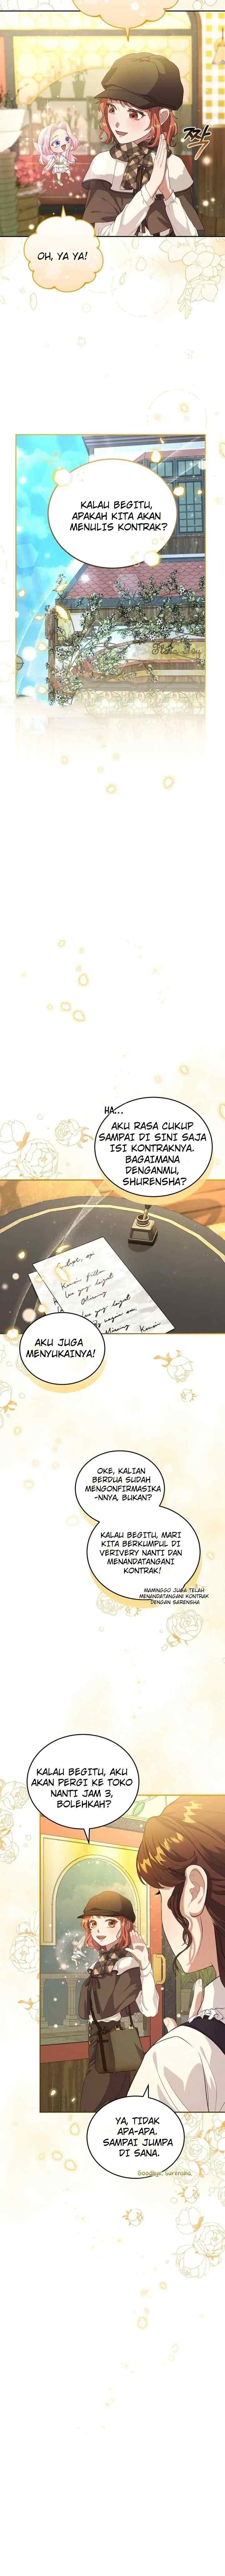 짝
OH, YA YA!
KALAU BEGITU,
APAKAH KITA AKAN
MENULIS KONTRAK?
HA...
AKU RASA CUKUP
SAMPAI DI SINI SAJA
ISI KONTRAKNYA.
BAGAIMANA
DENGANMU,
SHURENSHA?
AKU JUGA
MENYUKAINYA!
OKE, KALIAN
BERDUA SUDAH
MENGONFIRMASIKA
-NNYA, BUKAN?
KALAU BEGITU, MARI
KITA BERKUMPUL DI
VERIVERY NANTI DAN
MENANDATANGANI
KONTRAK!
MAMINGGO JUGA TELAH
MENANDATANGANI KONTRAK
DENGAN SARENSHA
KALAU BEGITU, AKU
AKAN PERGI KE TOKO
NANTI JAM 3,
BOLEHKAH?
YA, TIDAK
APA-APA.
SAMPAI JUMPA
DI SANA.
Goodbye, Surensha.